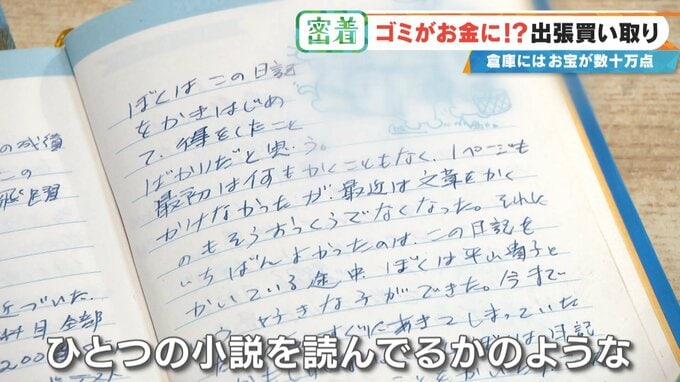 密着
ゴミがお金に!?出張買い取り
倉庫にはお宝が数十万点
の成績
この
ぼくは この日記
をかきはじめ
て、得をしたこと
ばかりだと思う。
最初は何もかくこともなく、1ページも
かけなかったが、最近は文章をかく
のもそうおっくうでなくなった。それに
いちばんよかったのは、この日記を
かいている途中 ぼくは平山
という好きな子ができた。今まで
すぐにあきてしまっていた
日記
近づいた。
科目全部
200
ひとつの小説を読んでるかのような